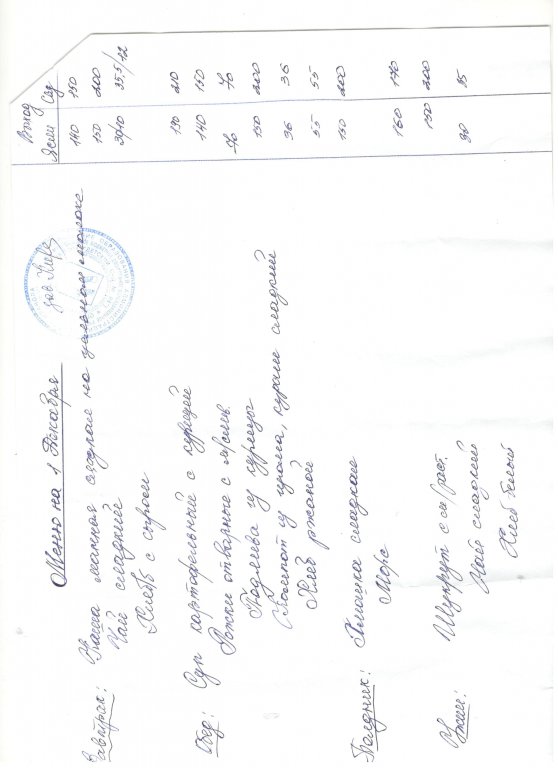 Выход
Меню на 1 Декабря
Ясли Сад
Завтрак: Каша манная сладкая на цельном молоке 140 150
Чай сладкий 150 200
Хлеб с сыром 35.5/12
Обед: Суп картофельный с курицей 190 210
Рожки отварные с маслом 140 150
Подлива из курицы 70 70
Компот из изюма, кураги сладкий 150 200
Хлеб ржаной 36 36
55 55
Полдник: сладкая 150 200
Морс
Ужин: 160 170
Чай сладкий 150 200
Хлеб белый 30 35